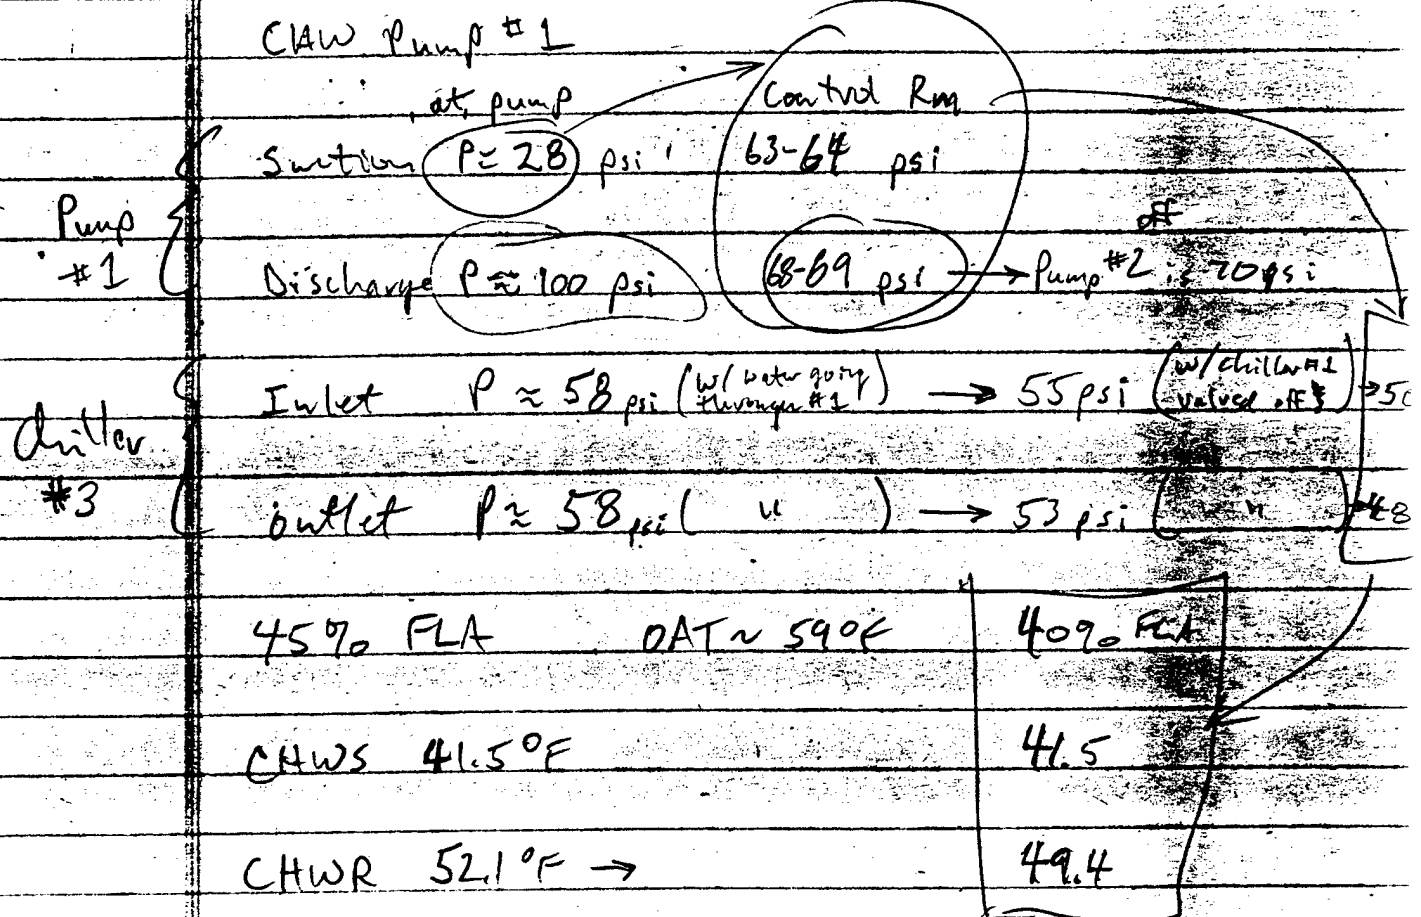 CHW Pump #1
at pump Control Rm
Suction P ≈ 28 psi 63-64 psi
Pump #1
off
Discharge P ≈ 100 psi 68-69 psi → Pump #2 is 70 psi
Inlet P ≈ 58 psi (w/ water going through #1) → 55 psi (w/ chiller #1 valved off) →
Chiller #3
outlet P ≈ 58 psi ( " ) → 53 psi ( " ) → 48
45% FLA OAT ~ 59°F 40% FLA
CHWS 41.5°F 41.5
CHWR 52.1°F → 49.4